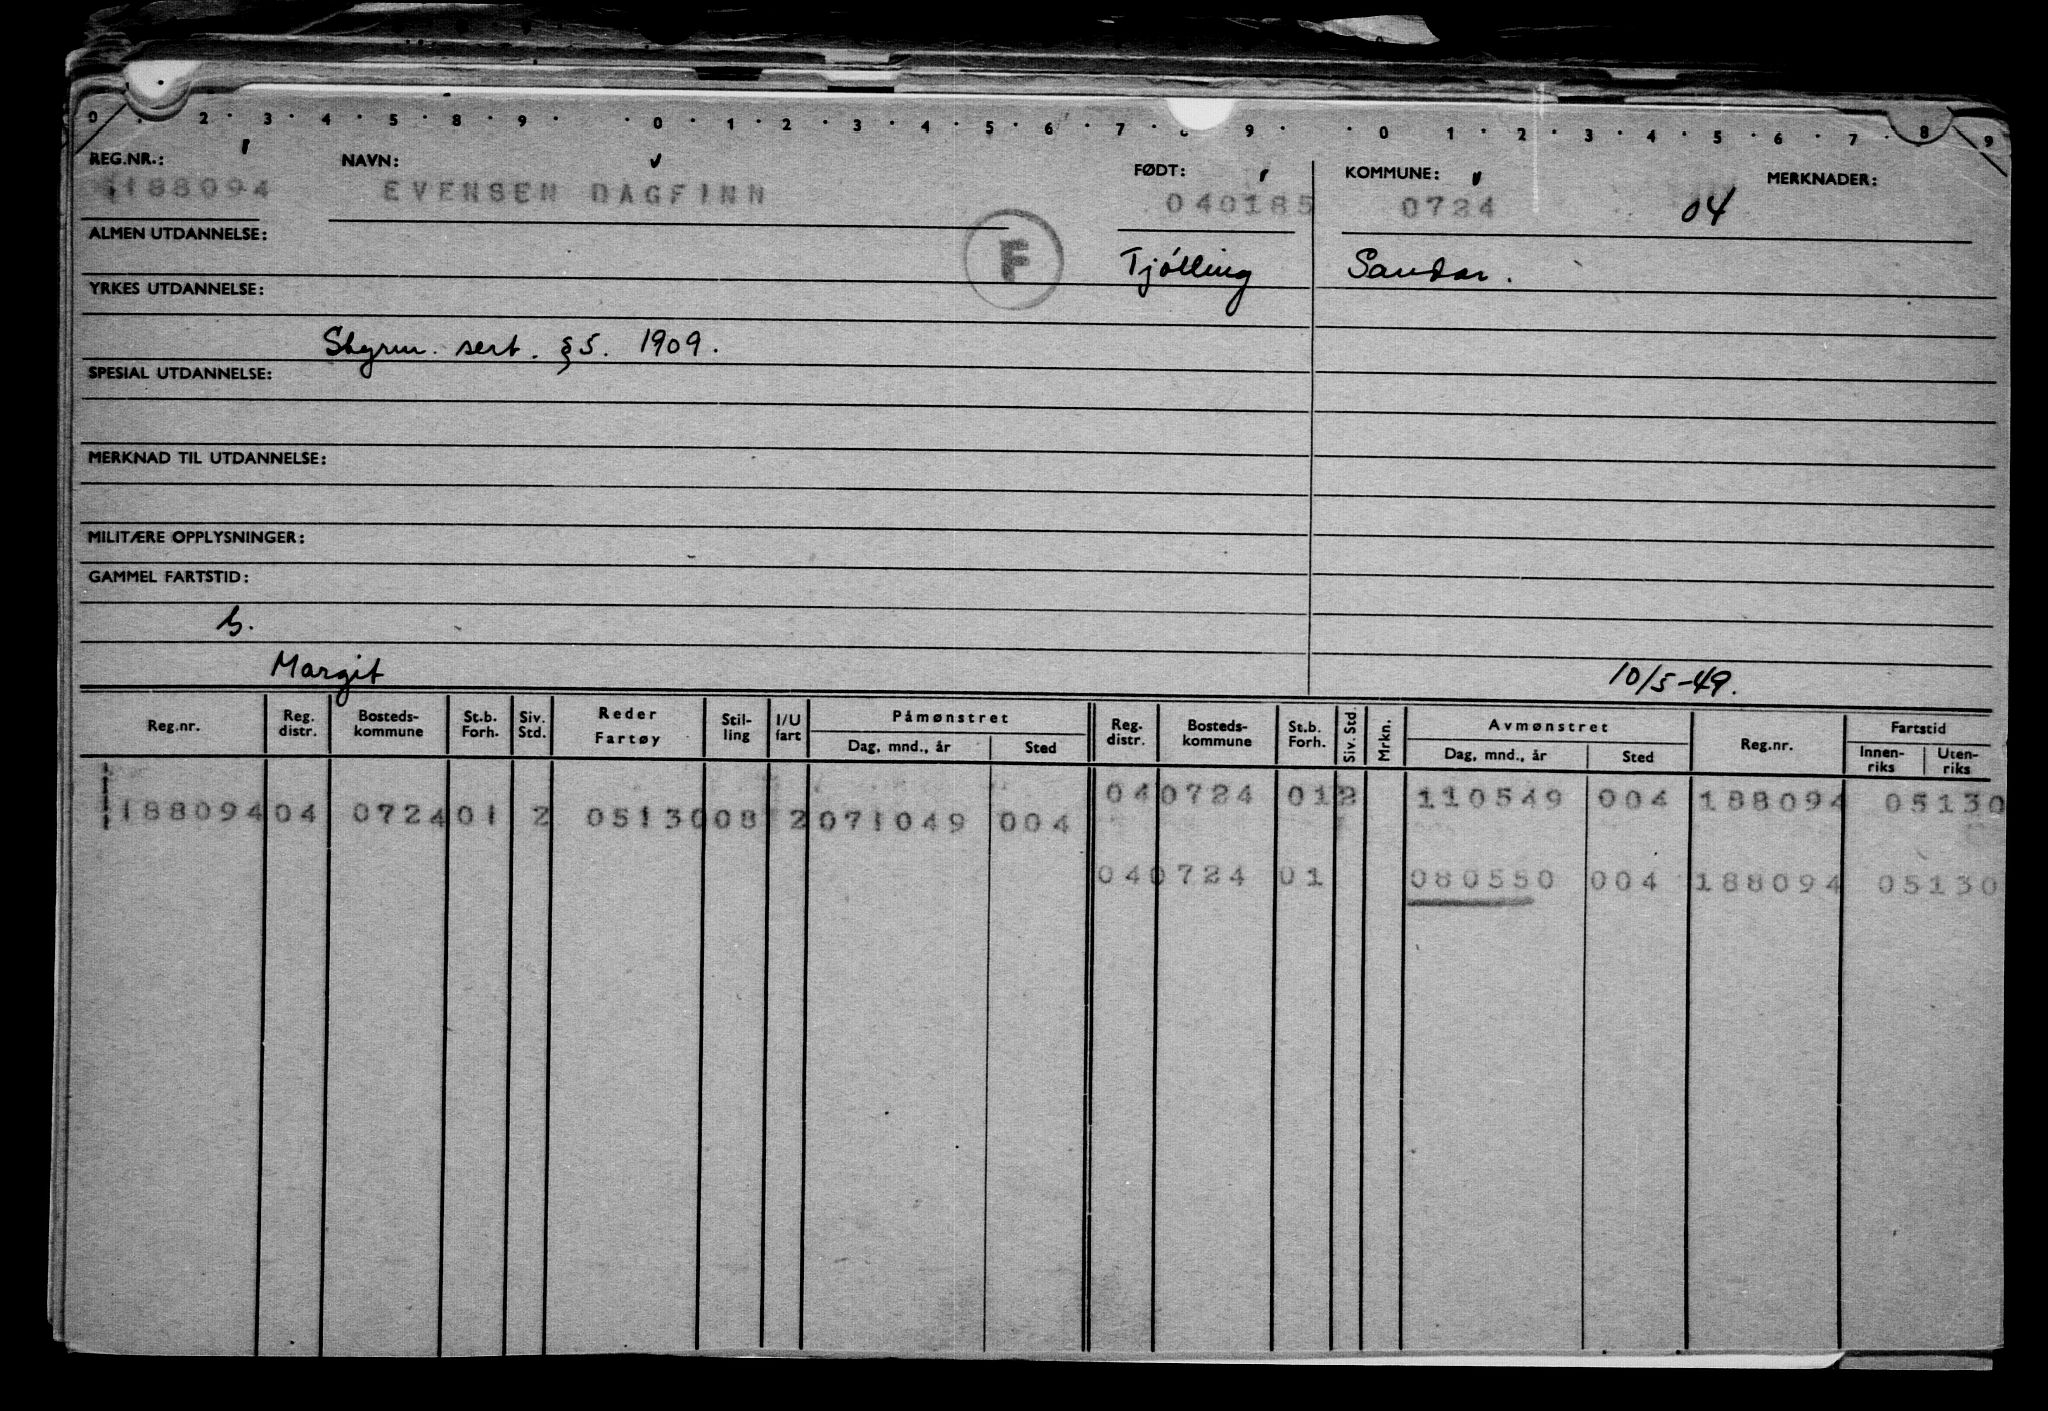 0 . 2 . 3 . 4 . 5 . 8 . 9 . . 0 . 1 . 2 . 3 . 4 . 5 . 6 . 7 . 9 . . 0 . 1 . 2 . 3 . 4 . 5 . 6 . 7 . 8 . 9
REG.NR.: NAVN: FØDT: KOMMUNE: MERKNADER:
188094 EVENSEN DAGFINN 040185 0724 04
ALMEN UTDANNELSE: F Tjølling Sandar.
YRKES UTDANNELSE:
Styrm. sert. §5. 1909.
SPESIAL UTDANNELSE:
MERKNAD TIL UTDANNELSE:
MILITÆRE OPPLYSNINGER:
GAMMEL FARTSTID:
Margit 10/5-49.
Reg.nr. Reg. distr. Bosteds- kommune St.b. Forh. Siv. Std. Reder Fartøy Stil- ling I/U fart Påmønstret Dag, mnd., år Sted Reg. distr. Bosteds- kommune St.b. Forh. Siv. Std. Mrkn. Avmønstret Dag, mnd., år Sted Reg.nr. Fartstid Innen- riks Uten- riks
04 0724 01 2 110549 004 188094 05130
188094 04 0724 01 2 05130 08 2 071049 004
04 0724 01 080550 004 188094 05130